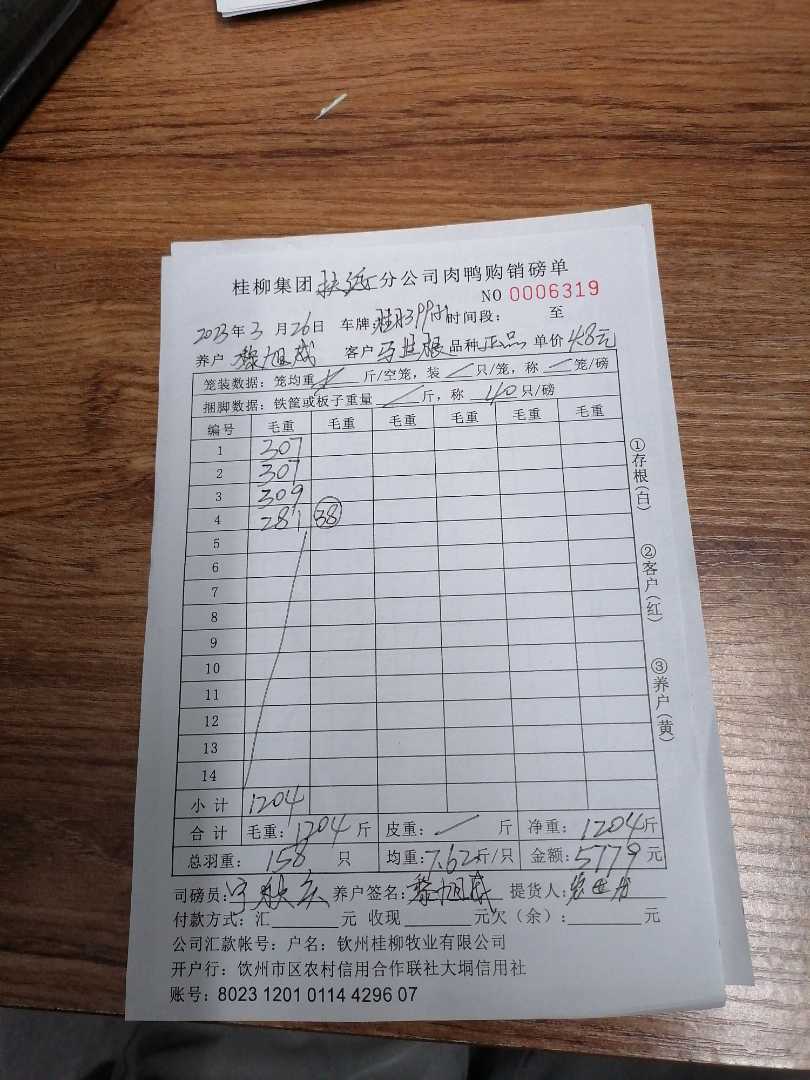 桂柳集团扶绥分公司肉鸭购销磅单
NO 0006319
2023年3月26日 车牌 时间段: 至
养户 黎旭威 客户 马世根 品种 正品 单价 4.8元
笼装数据: 笼均重 斤/空笼, 装 只/笼, 称 笼/磅
捆脚数据: 铁筐或板子重量 斤, 称 40 只/磅
编号 毛重 毛重 毛重 毛重 毛重 毛重
1 307
2 307
3 309
4 281 38
5
6
7
8
9
10
11
12
13
14
小计 1204
合计 毛重: 1204 斤 皮重: 斤 净重: 1204 斤
总羽重: 158 只 均重: 7.62 斤/只 金额: 5779 元
司磅员: 养户签名: 黎旭威 提货人:
付款方式: 汇 元 收现 元欠(余): 元
公司汇款帐号: 户名: 钦州桂柳牧业有限公司
开户行: 饮州市区农村信用合作联社大垌信用社
账号: 8023 1201 0114 4296 07
①存根(白)
②客户(红)
③养户(黄)